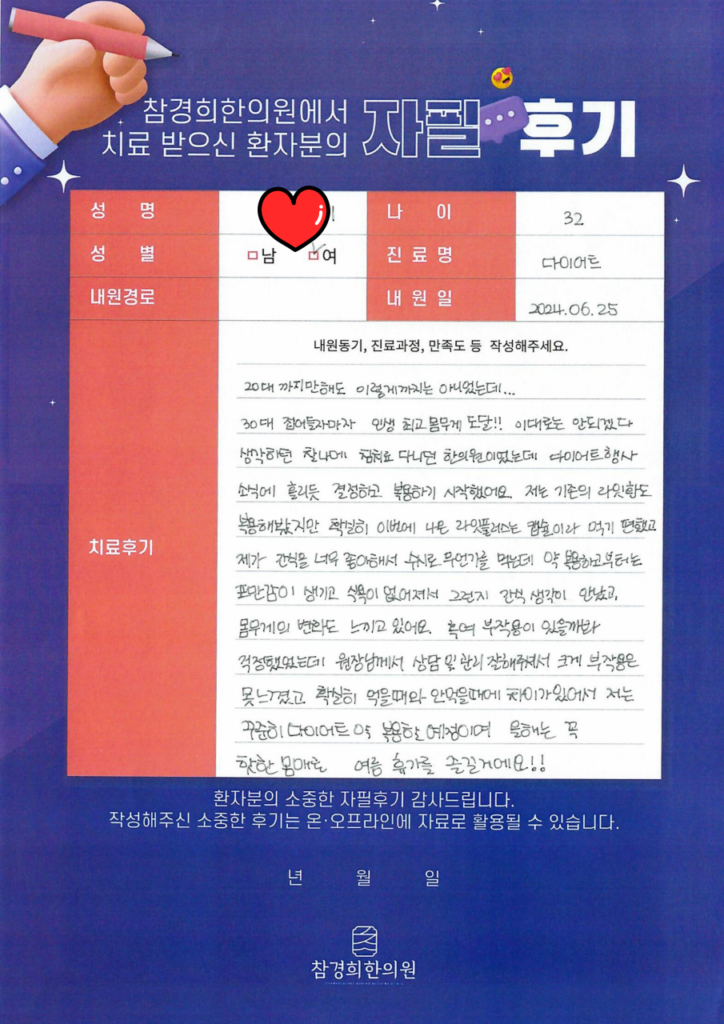 참경희한의원에서
치료 받으신 환자분의 자필 후기
성 명
나 이 32
성 별 남 여
진료명 다이어트
내원경로
내원일 2024.06.25
내원동기, 진료과정, 만족도 등 작성해주세요.
치료후기
20대 까지만해도 이렇게까지는 아니었는데...
30대 접어들자마자 인생 최고 몸무게 도달!! 이대로는 안되겠다
생각하던 찰나에 침치료 다니던 한의원이었는데 다이어트행사
소식에 홀리듯 결정하고 복용하기 시작했어요. 저는 기존의 라잇한도
복용해봤지만 확실히 이번에 나온 라잇플러스는 캡슐이라 먹기 편했고
제가 간식을 너무 좋아해서 수시로 무언가를 먹는데 약 복용하고부터는
포만감이 생기고 식욕이 없어져서 그런지 간식 생각이 안났고,
몸무게의 변화도 느끼고 있어요. 혹여 부작용이 있을까봐
걱정됐었는데 원장님께서 상담 및 관리 잘해주셔서 크게 부작용은
못느꼈고 확실히 먹을때와 안먹을때에 차이가있어서 저는
꾸준히 다이어트 약 복용할 예정이며 올해는 꼭
핫한 몸매로 여름 휴가를 즐길거에요!!
환자분의 소중한 자필후기 감사드립니다.
작성해주신 소중한 후기는 온·오프라인에 자료로 활용될 수 있습니다.
년 월 일
참경희한의원